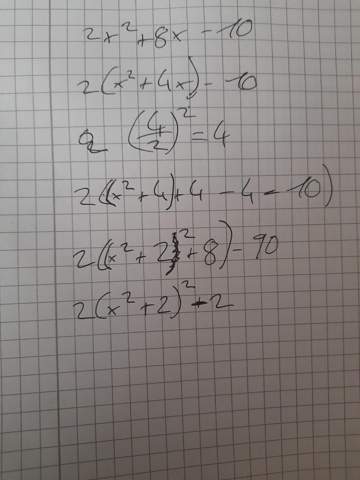 2x² + 8x - 10
2(x² + 4x) - 10
2 (4/2)² = 4
2((x² + 4) + 4 - 4 - 10)
2((x² + 2)² + 8) - 90
2(x² + 2)² - 2